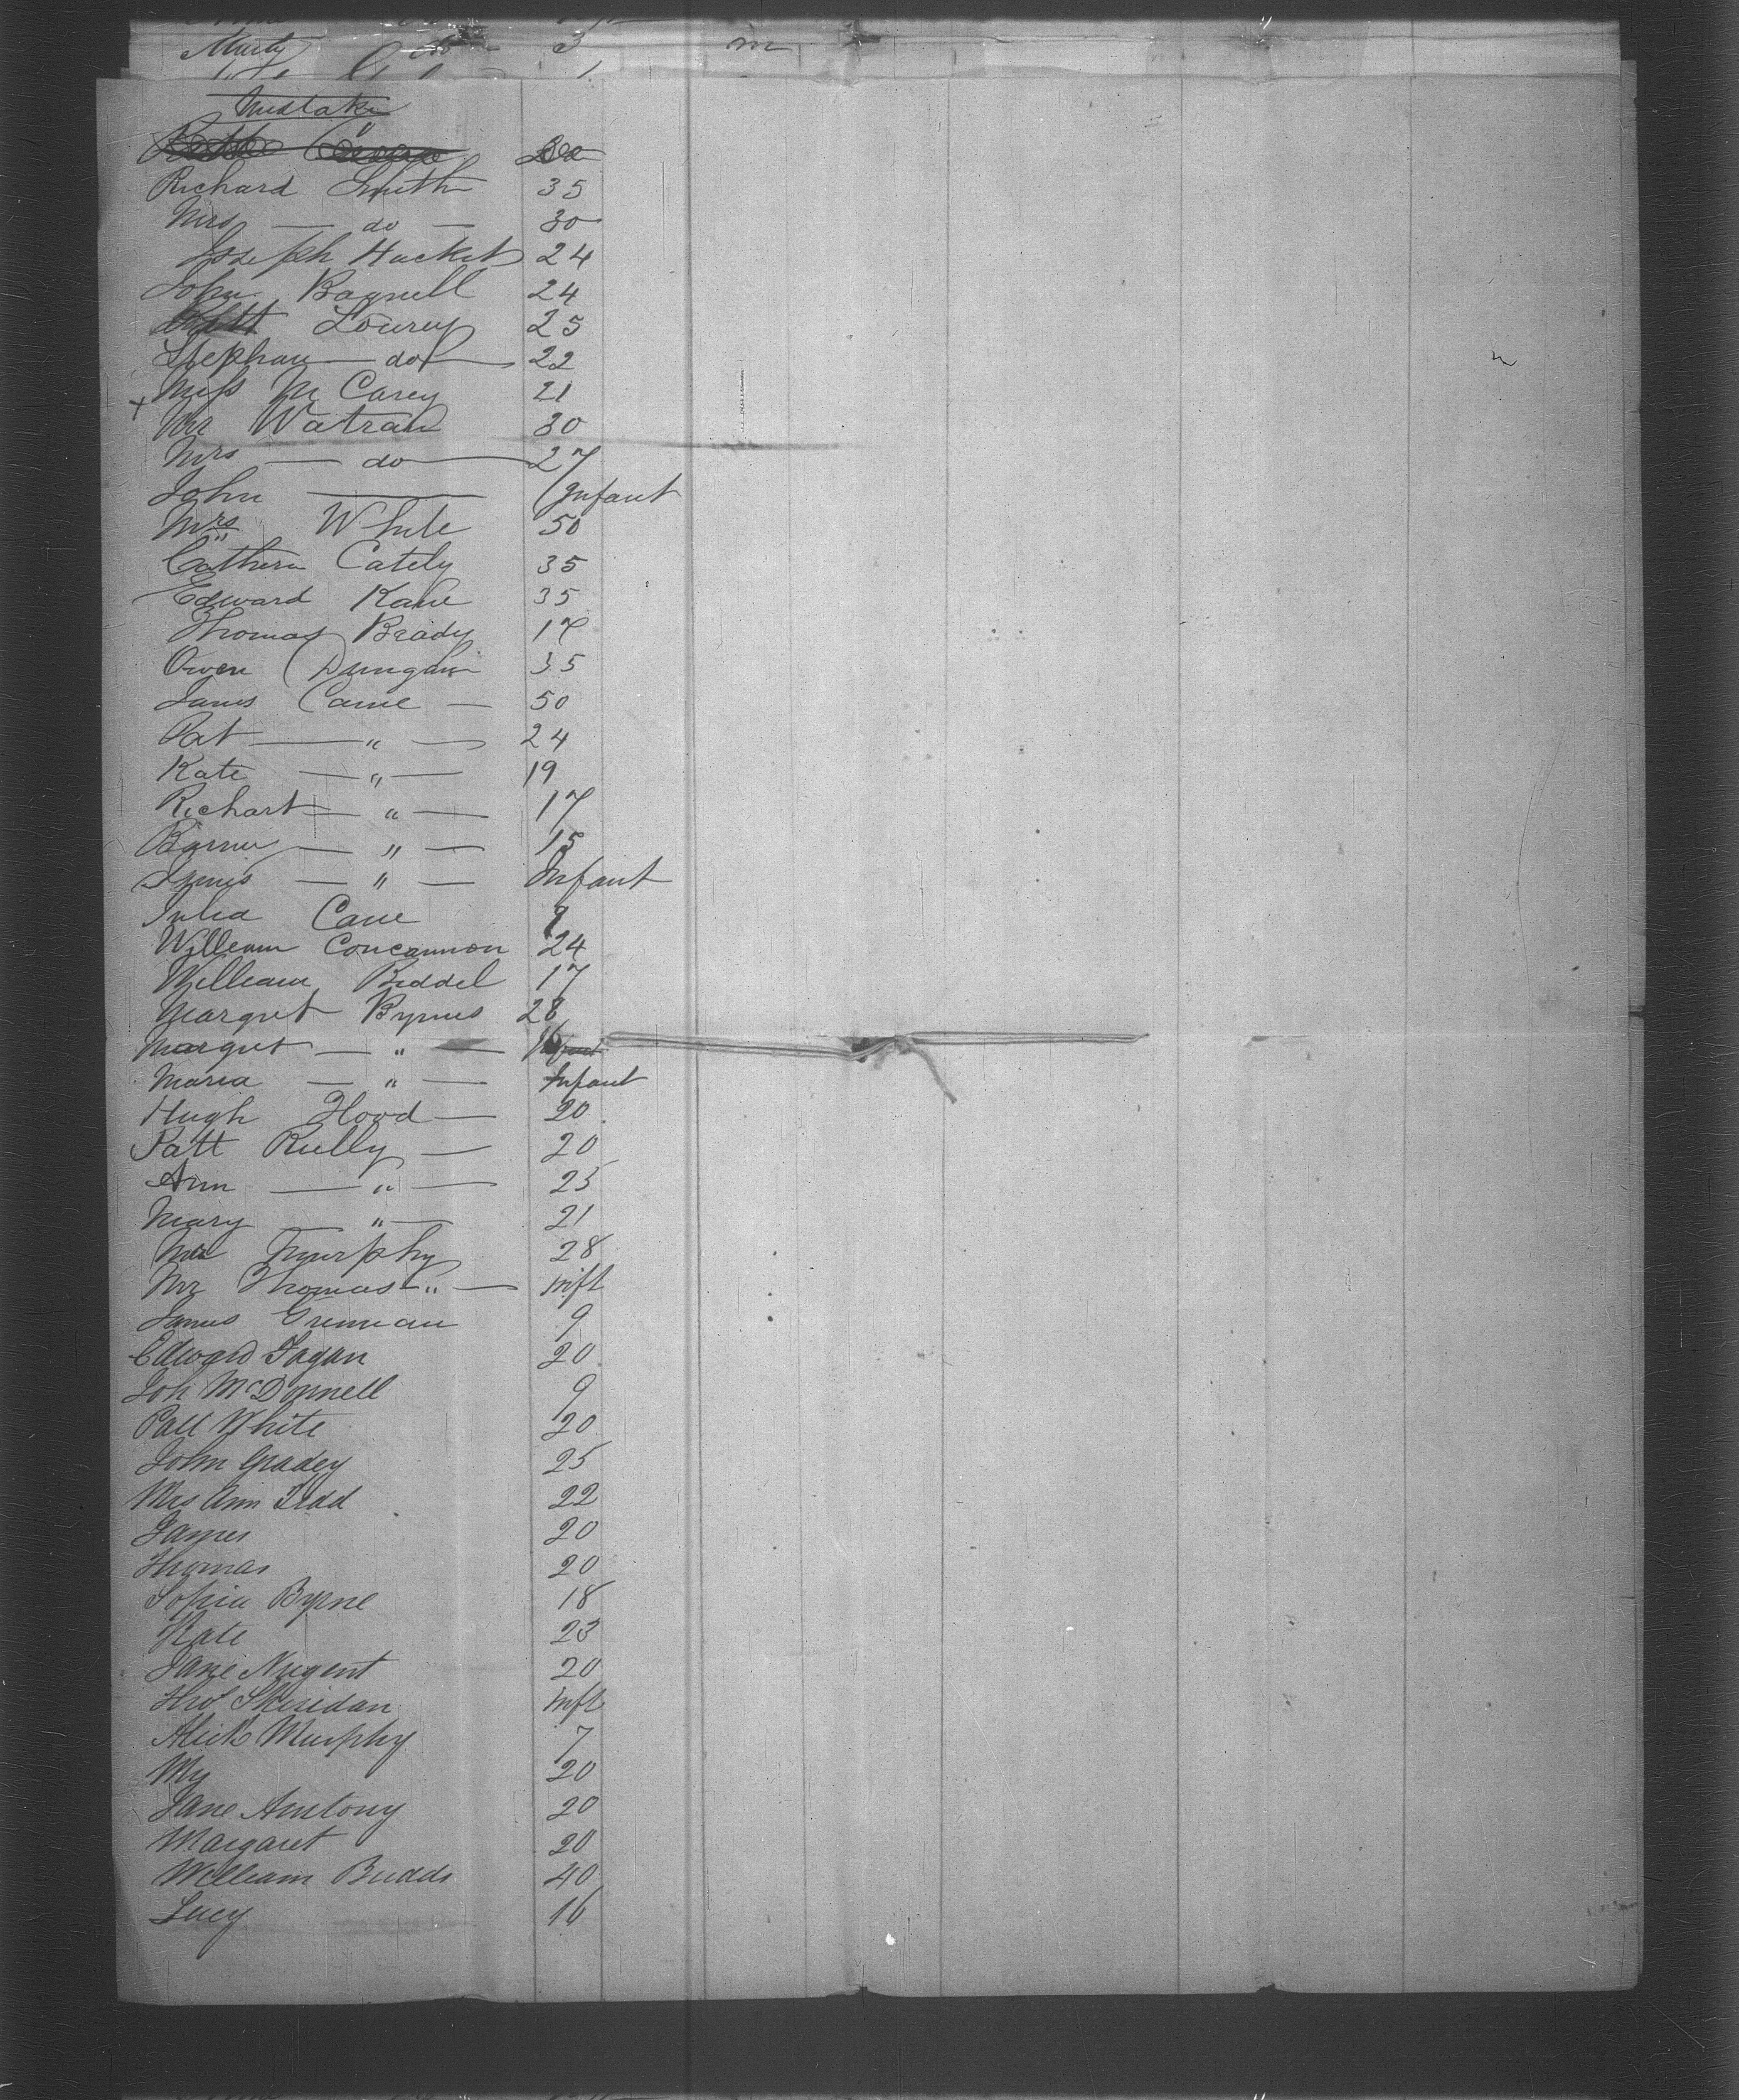 Murty do 3 m
Mistake
Richard Smith 35
Mrs — do — 30
Joseph Hacket 24
John Bagnell 24
Lowrey 25
Stephan — do — 22
x Miss M Carey 21
Mr Watran 30
Mrs — do — 27
John — Infant
Mrs White 50
Cathern Cately 35
Edward Kane 35
Thomas Brady 17
Owen Dungan 35
James Cane — 50
Pat — " — 24
Kate — " — 19
Richart — " — 17
Barney — " — 15
— " — Infant
Julia Cane 9
William Concannon 24
William Biddel 17
Margret Byrnes 28
Margret — " — 16
Maria — " — Infant
Hugh Flood — 20
Patt Rielly — 20
Ann — " — 25
Mary — " — 21
Mrs Murphy 28
Mr Thomas " — Inft
James Grennan 9
Edward Fagan 20
Joh McDonnell 9
Patt White 20
John Gradey 25
Mrs Ann Tedd 22
James 20
Thomas 20
Sophia Byrne 18
Kate 23
Jane Nugent 20
Thos Sheridan Inft
Alick Murphy 7
My 20
Jane Antony 20
Margaret 20
William Budds 40
Lucy 16